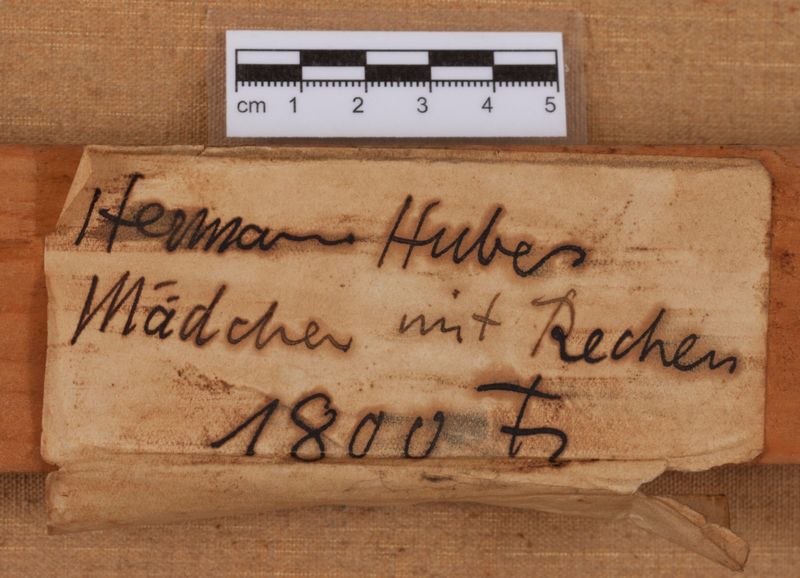 cm 1 2 3 4 5
Hermann Huber
Mädchen mit Rechen
1800 Fr